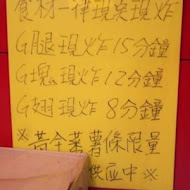 食材一律現點現炸
G腿現炸15分鐘
G塊現炸12分鐘
G翅現炸8分鐘
※黃金薯條限量
供應中※